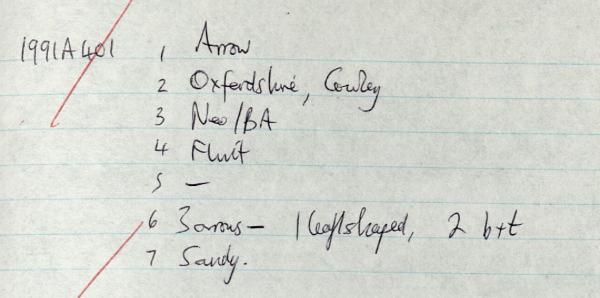 1991A401 1 Arrow
2 Oxfordshire, Cowley
3 Neo/BA
4 Flint
5 —
6 3 arrows — 1 leafshaped, 2 b+t
7 Sandy.